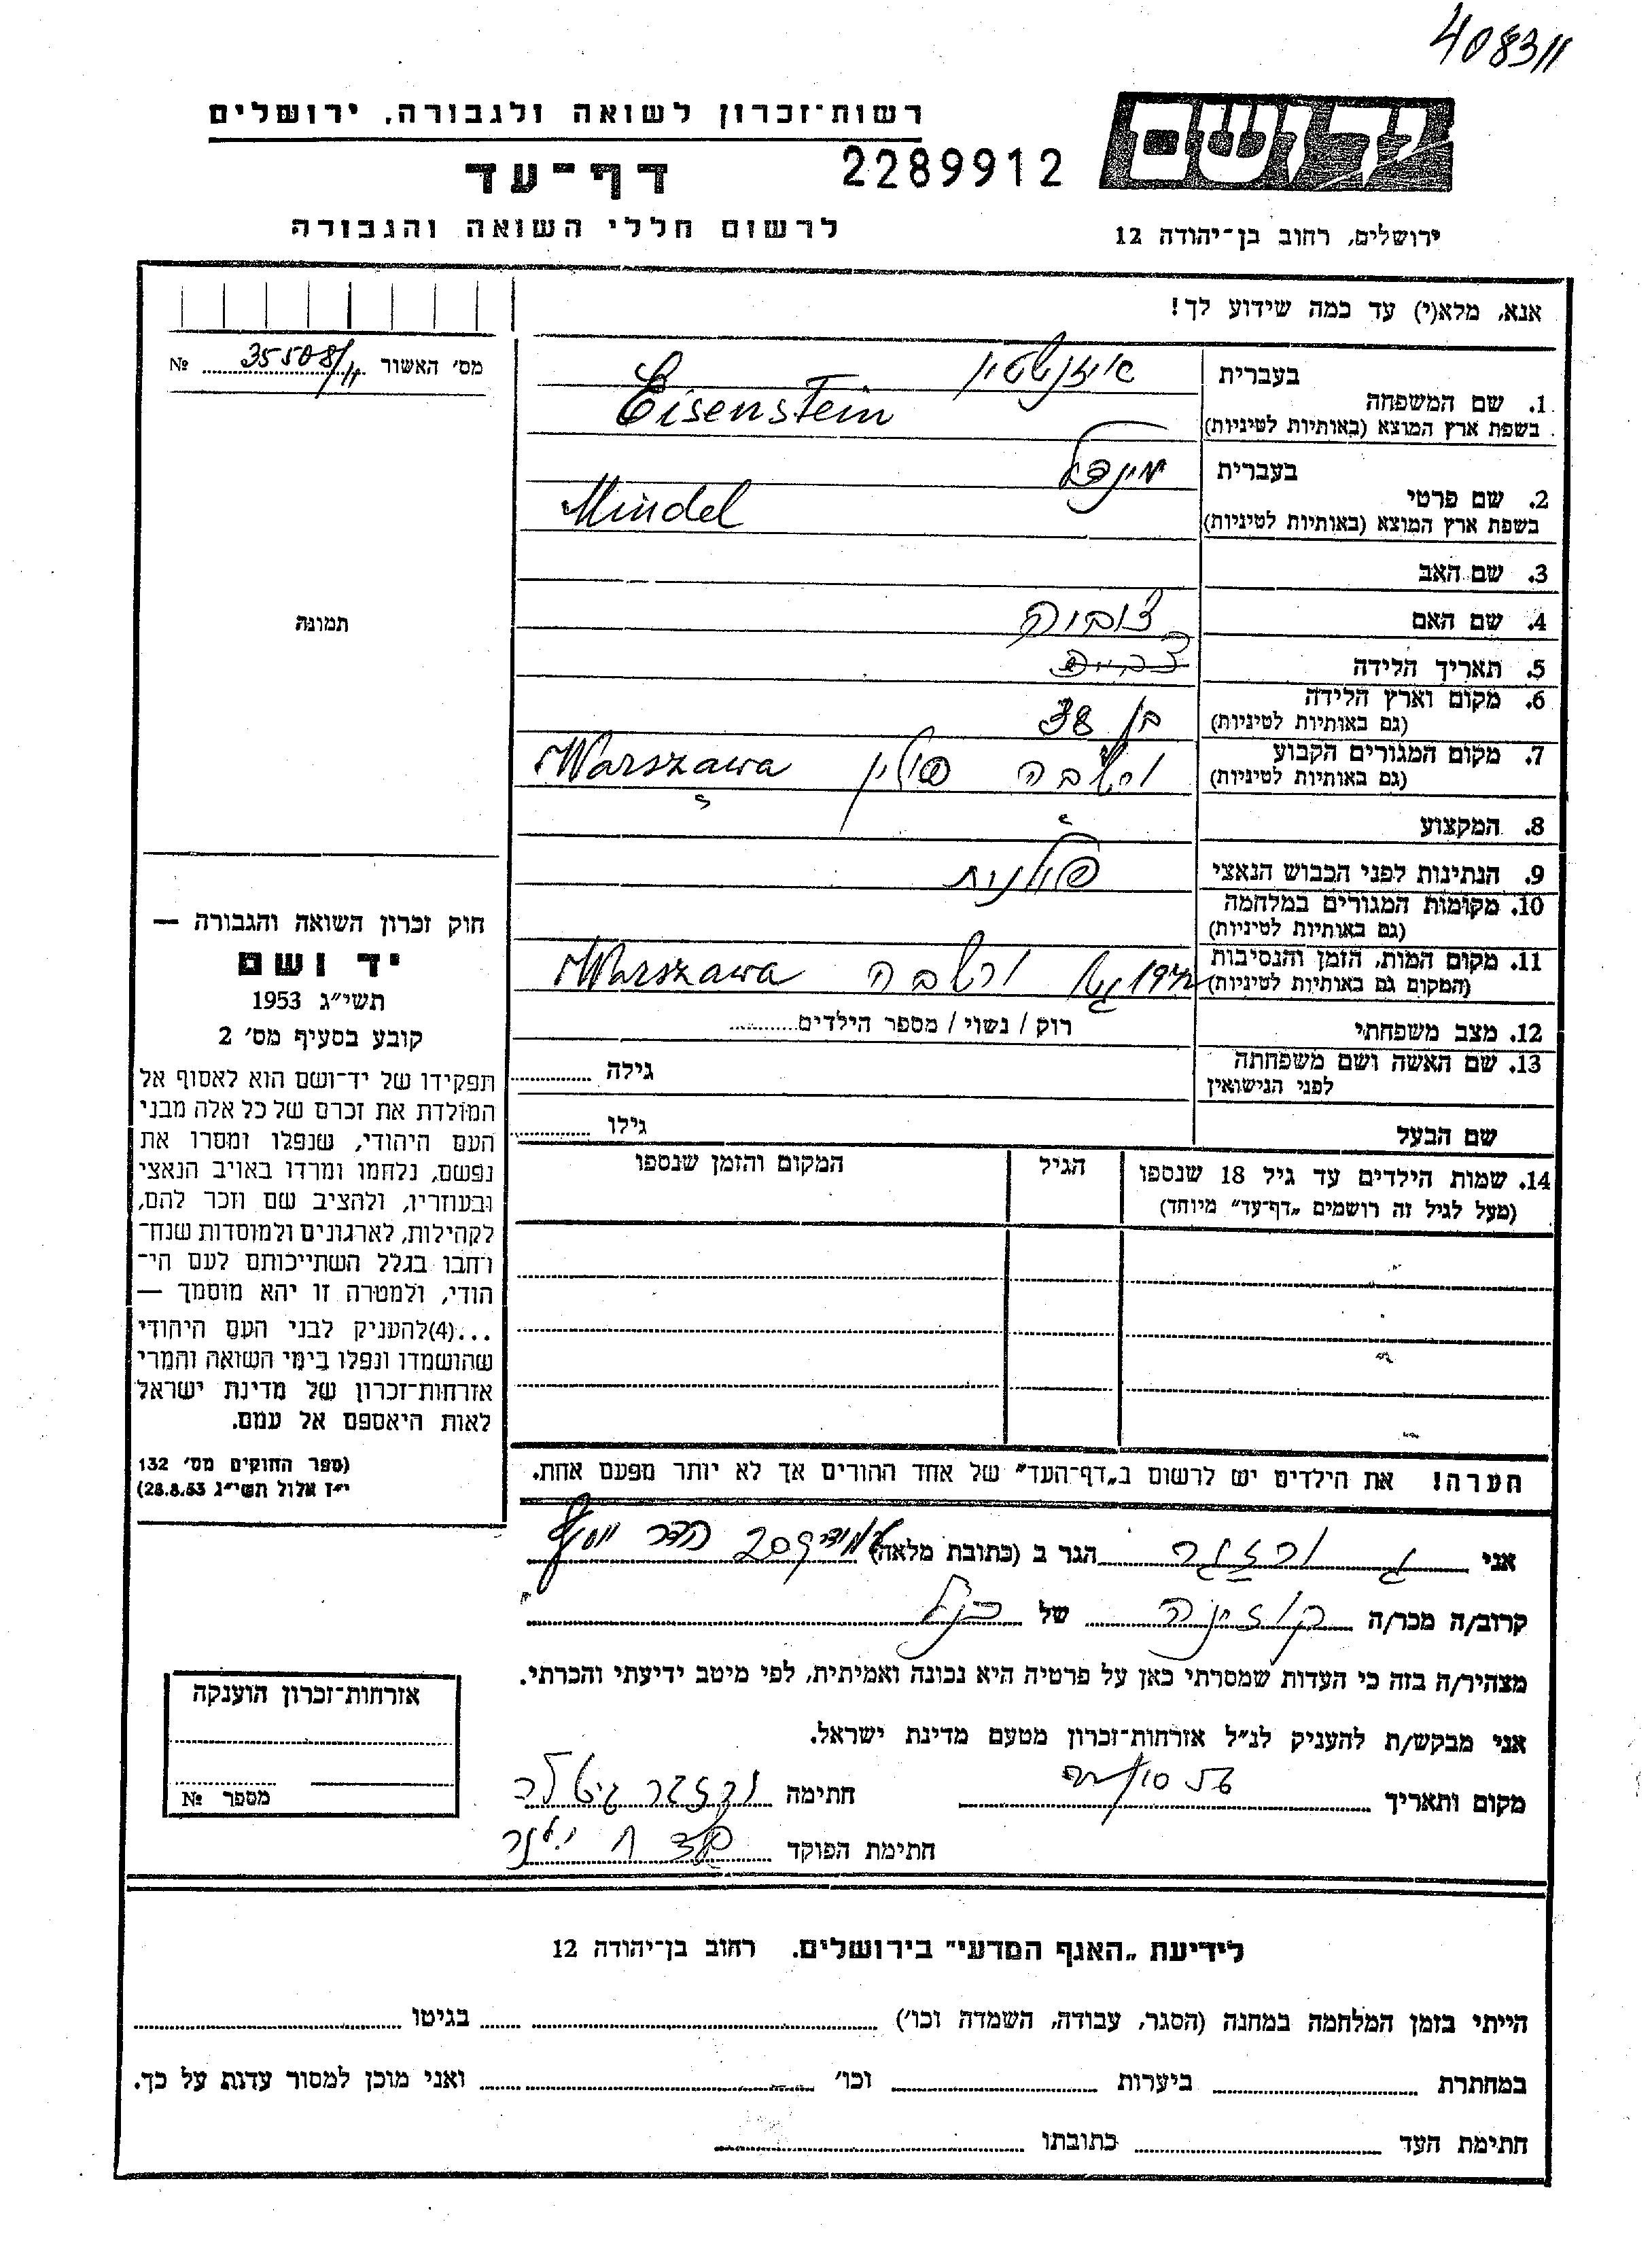 408311
רשות-זכרון לשואה ולגבורה, ירושלים
ידושם
דף-עד
2289912
לרשום חללי השואה והגבורה
ירושלים, רחוב בן-יהודה 12
אנא, מלא(י) עד כמה שידוע לך!
מס' האשור 35508/11 №
1. שם המשפחה
בעברית איזנשטיין
בשפת ארץ המוצא (באותיות לטיניות) Eisenstein
2. שם פרטי
בעברית מינדל
בשפת ארץ המוצא (באותיות לטיניות) Mindel
תמונה
3. שם האב
4. שם האם
5. תאריך הלידה
6. מקום וארץ הלידה
(גם באותיות לטיניות) בן 38
7. מקום המגורים הקבוע
(גם באותיות לטיניות) ורשבה פולין Warszawa
8. המקצוע
9. הנתינות לפני הכבוש הנאצי פולנית
10. מקומות המגורים במלחמה
(גם באותיות לטיניות)
11. מקום המות, הזמן והנסיבות
(המקום גם באותיות לטיניות) ורשבה Warszawa
12. מצב משפחתי רוק / נשוי / מספר הילדים
13. שם האשה ושם משפחתה
לפני הנישואין
גילה
שם הבעל
גילו
14. שמות הילדים עד גיל 18 שנספו
(מעל לגיל זה רושמים „דף-עד" מיוחד)
הגיל
המקום והזמן שנספו
חוק זכרון השואה והגבורה —
יד ושם
תשי"ג 1953
קובע בסעיף מס' 2
תפקידו של יד-ושם הוא לאסוף אל
המולדת את זכרם של כל אלה מבני
העם היהודי, שנפלו ומסרו את
נפשם, נלחמו ומרדו באויב הנאצי
ובעוזריו, ולהציב שם וזכר להם,
לקהילות, לארגונים ולמוסדות שנח-
רחבו בגלל השתייכותם לעם הי-
הודי, ולמטרה זו יהא מוסמך —
...(4)להעניק לבני העם היהודי
שהושמדו ונפלו בימי השואה והמרי
אזרחות-זכרון של מדינת ישראל
לאות היאספם אל עמם.
(ספר החוקים מס' 132
י"ז אלול תשי"ג 28.8.53)
הערה! את הילדים יש לרשום ב„דף-העד" של אחד ההורים אך לא יותר מפעם אחת.
אני
הגר ב (כתובת מלאה)
קרוב/ה מכר/ה קוזינה של
מצהיר/ה בזה כי העדות שמסרתי כאן על פרטיה היא נכונה ואמיתית, לפי מיטב ידיעתי והכרתי.
אני מבקש/ת להעניק לנ"ל אזרחות-זכרון מטעם מדינת ישראל.
מקום ותאריך
חתימה
חתימת הפוקד
אזרחות-זכרון הוענקה
מספר №
לידיעת „האגף המדעי" בירושלים. רחוב בן-יהודה 12
הייתי בזמן המלחמה במחנה (הסגר, עבודה, השמדה וכו') בגיטו
במחתרת ביערות וכו' ואני מוכן למסור עדות על כך.
חתימת העד כתובתו